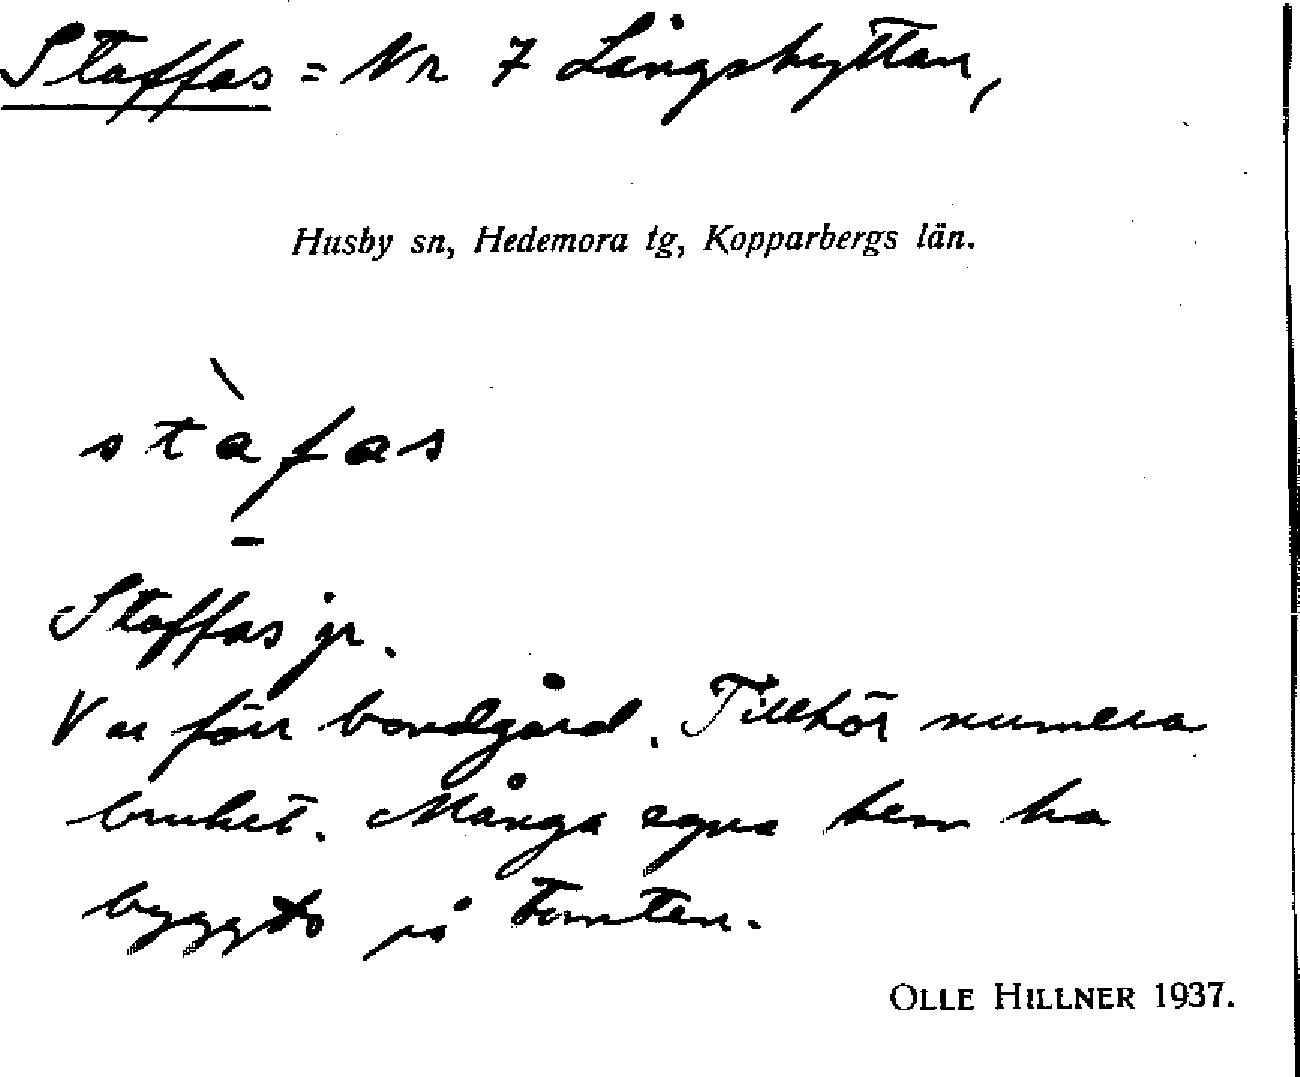 Staffas = Nr 7 Långshyttan,
Husby sn, Hedemora tg, Kopparbergs län.
stàfas
Staffas jr.
Var förr bondgård. Tillhör numera
bruket. Många egna hem ha
byggts på tomten.
OLLE HILLNER 1937.